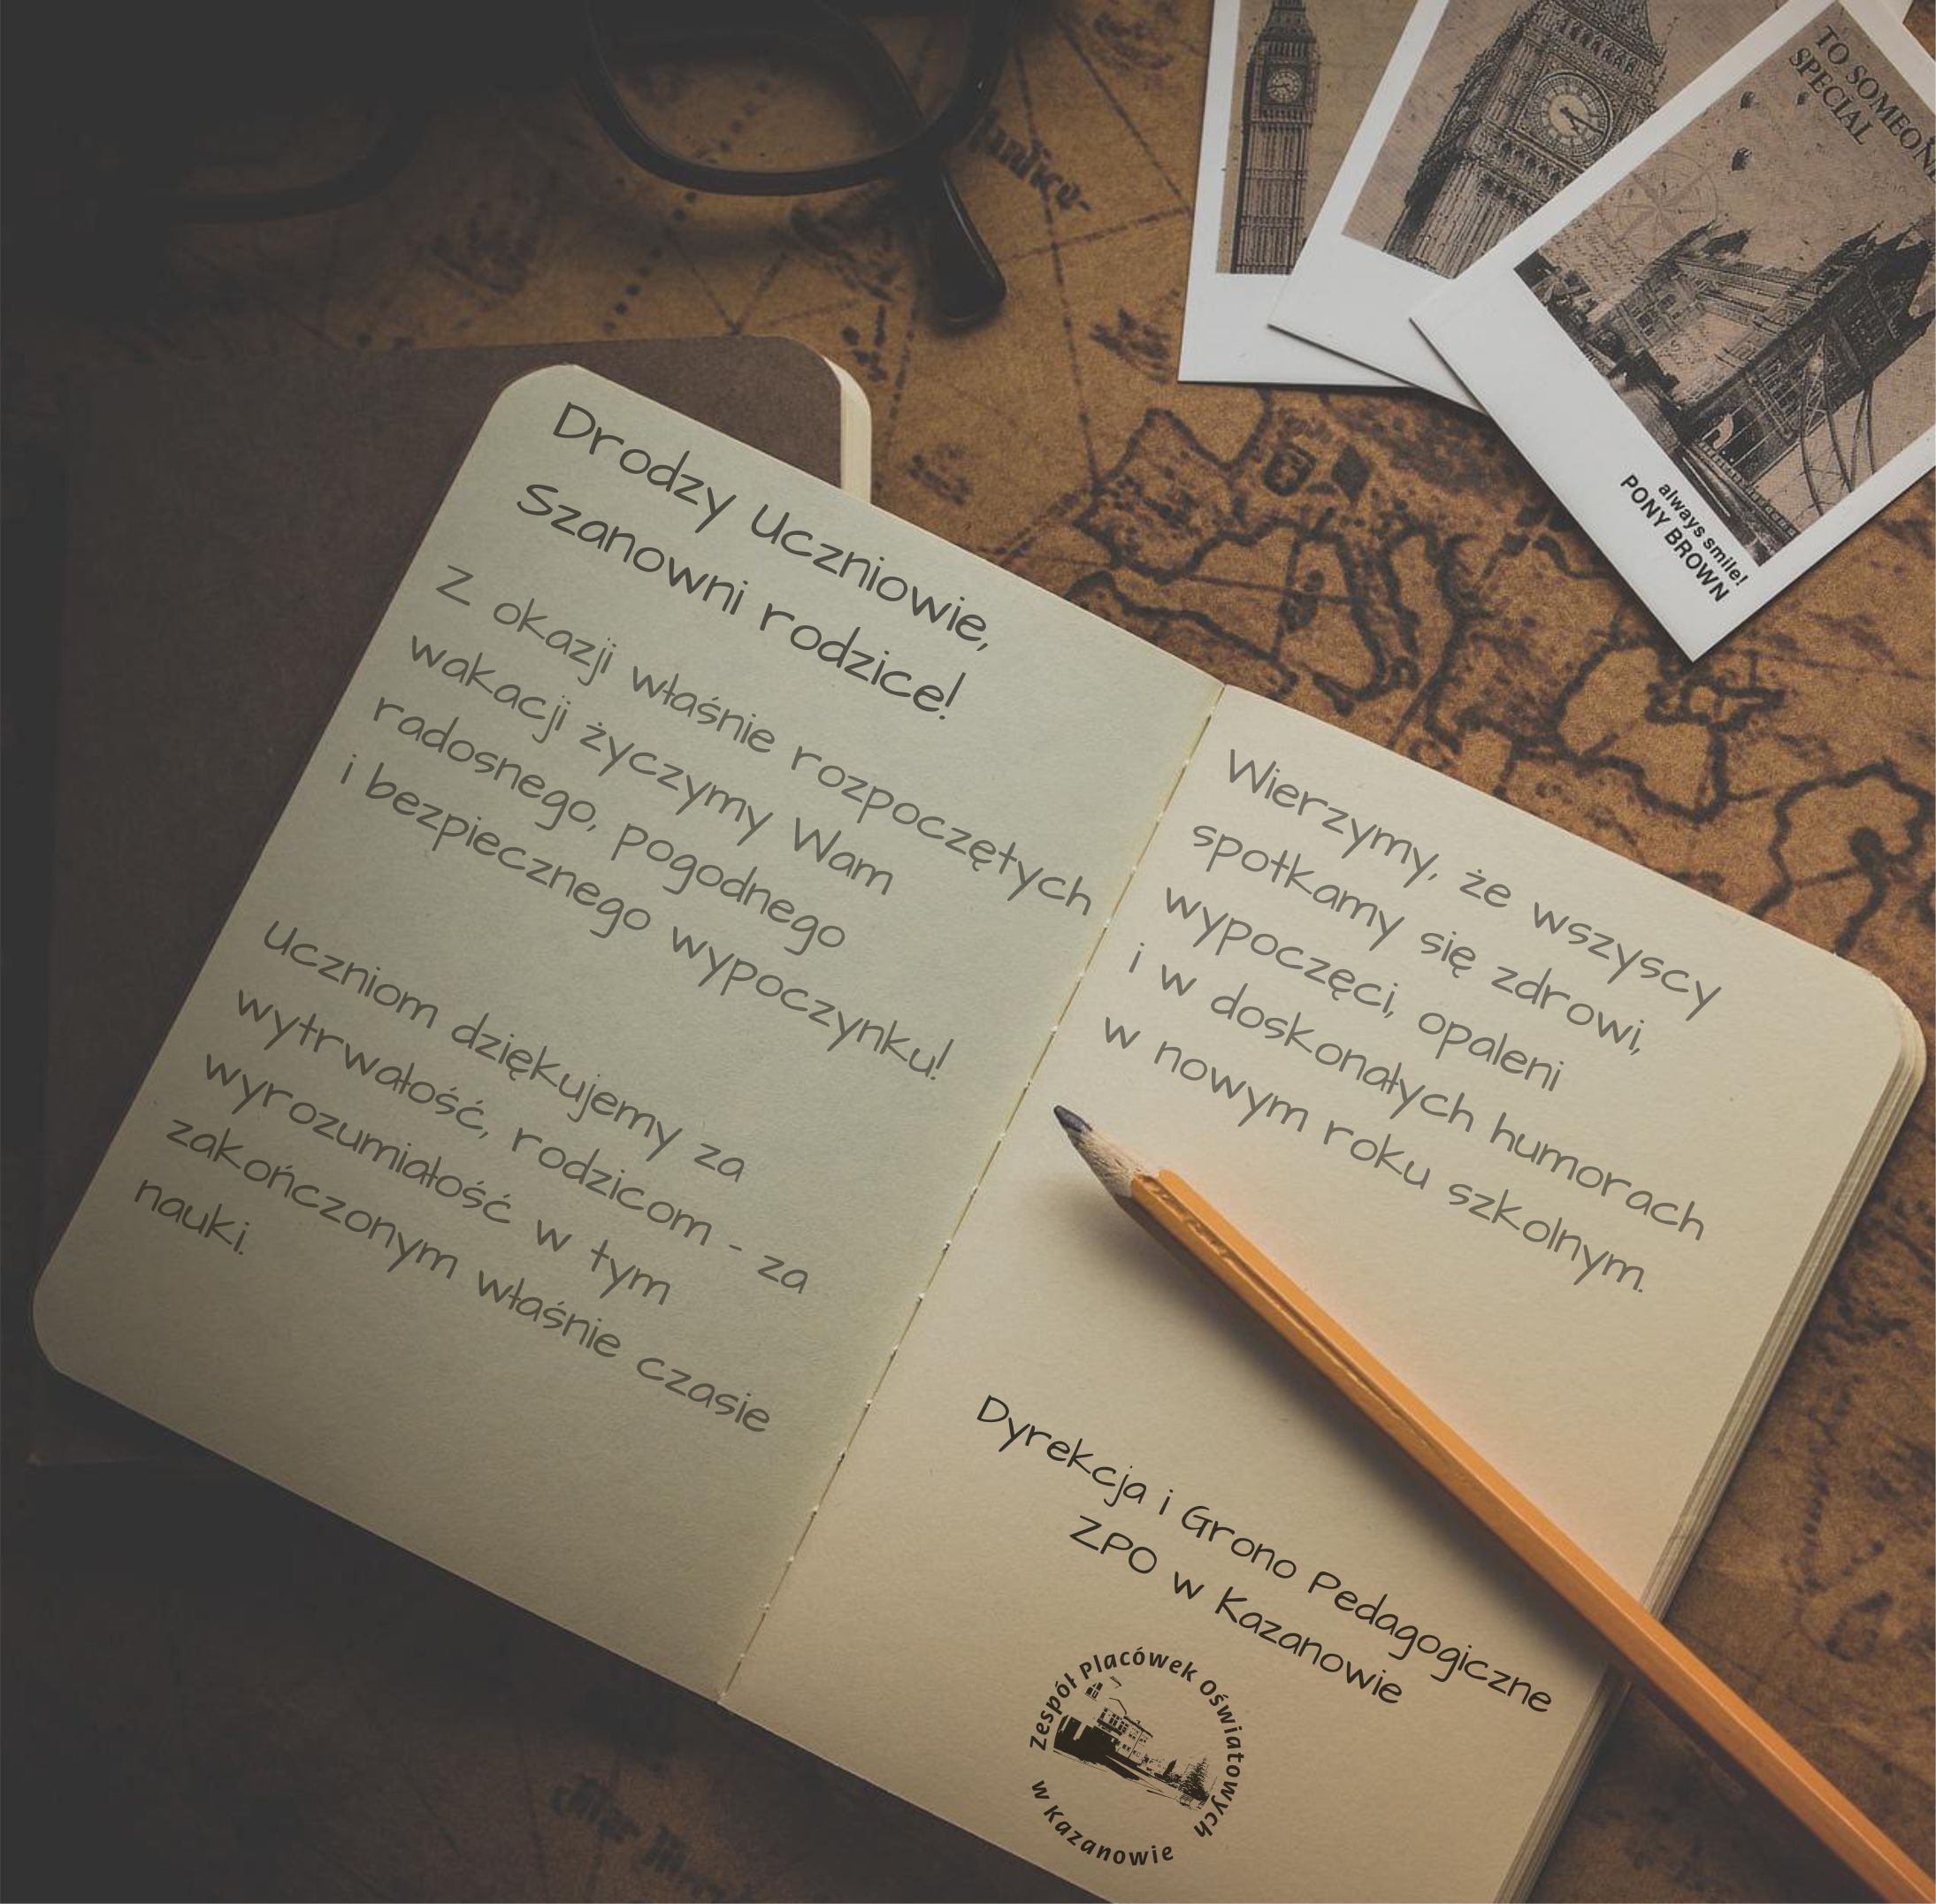 Drodzy Uczniowie,
Szanowni rodzice!
Z okazji właśnie rozpoczętych
wakacji życzymy Wam
radosnego, pogodnego
i bezpiecznego wypoczynku!
Uczniom dziękujemy za
wytrwałość, rodzicom - za
wyrozumiałość w tym
zakończonym właśnie czasie
nauki.
Wierzymy, że wszyscy
spotkamy się zdrowi,
wypoczęci, opaleni
i w doskonałych humorach
w nowym roku szkolnym.
Dyrekcja i Grono Pedagogiczne
ZPO w Kazanowie
Zespół Placówek Oświatowych
w Kazanowie
TO SOMEONE
SPECIAL
always smile!
PONY BROWN